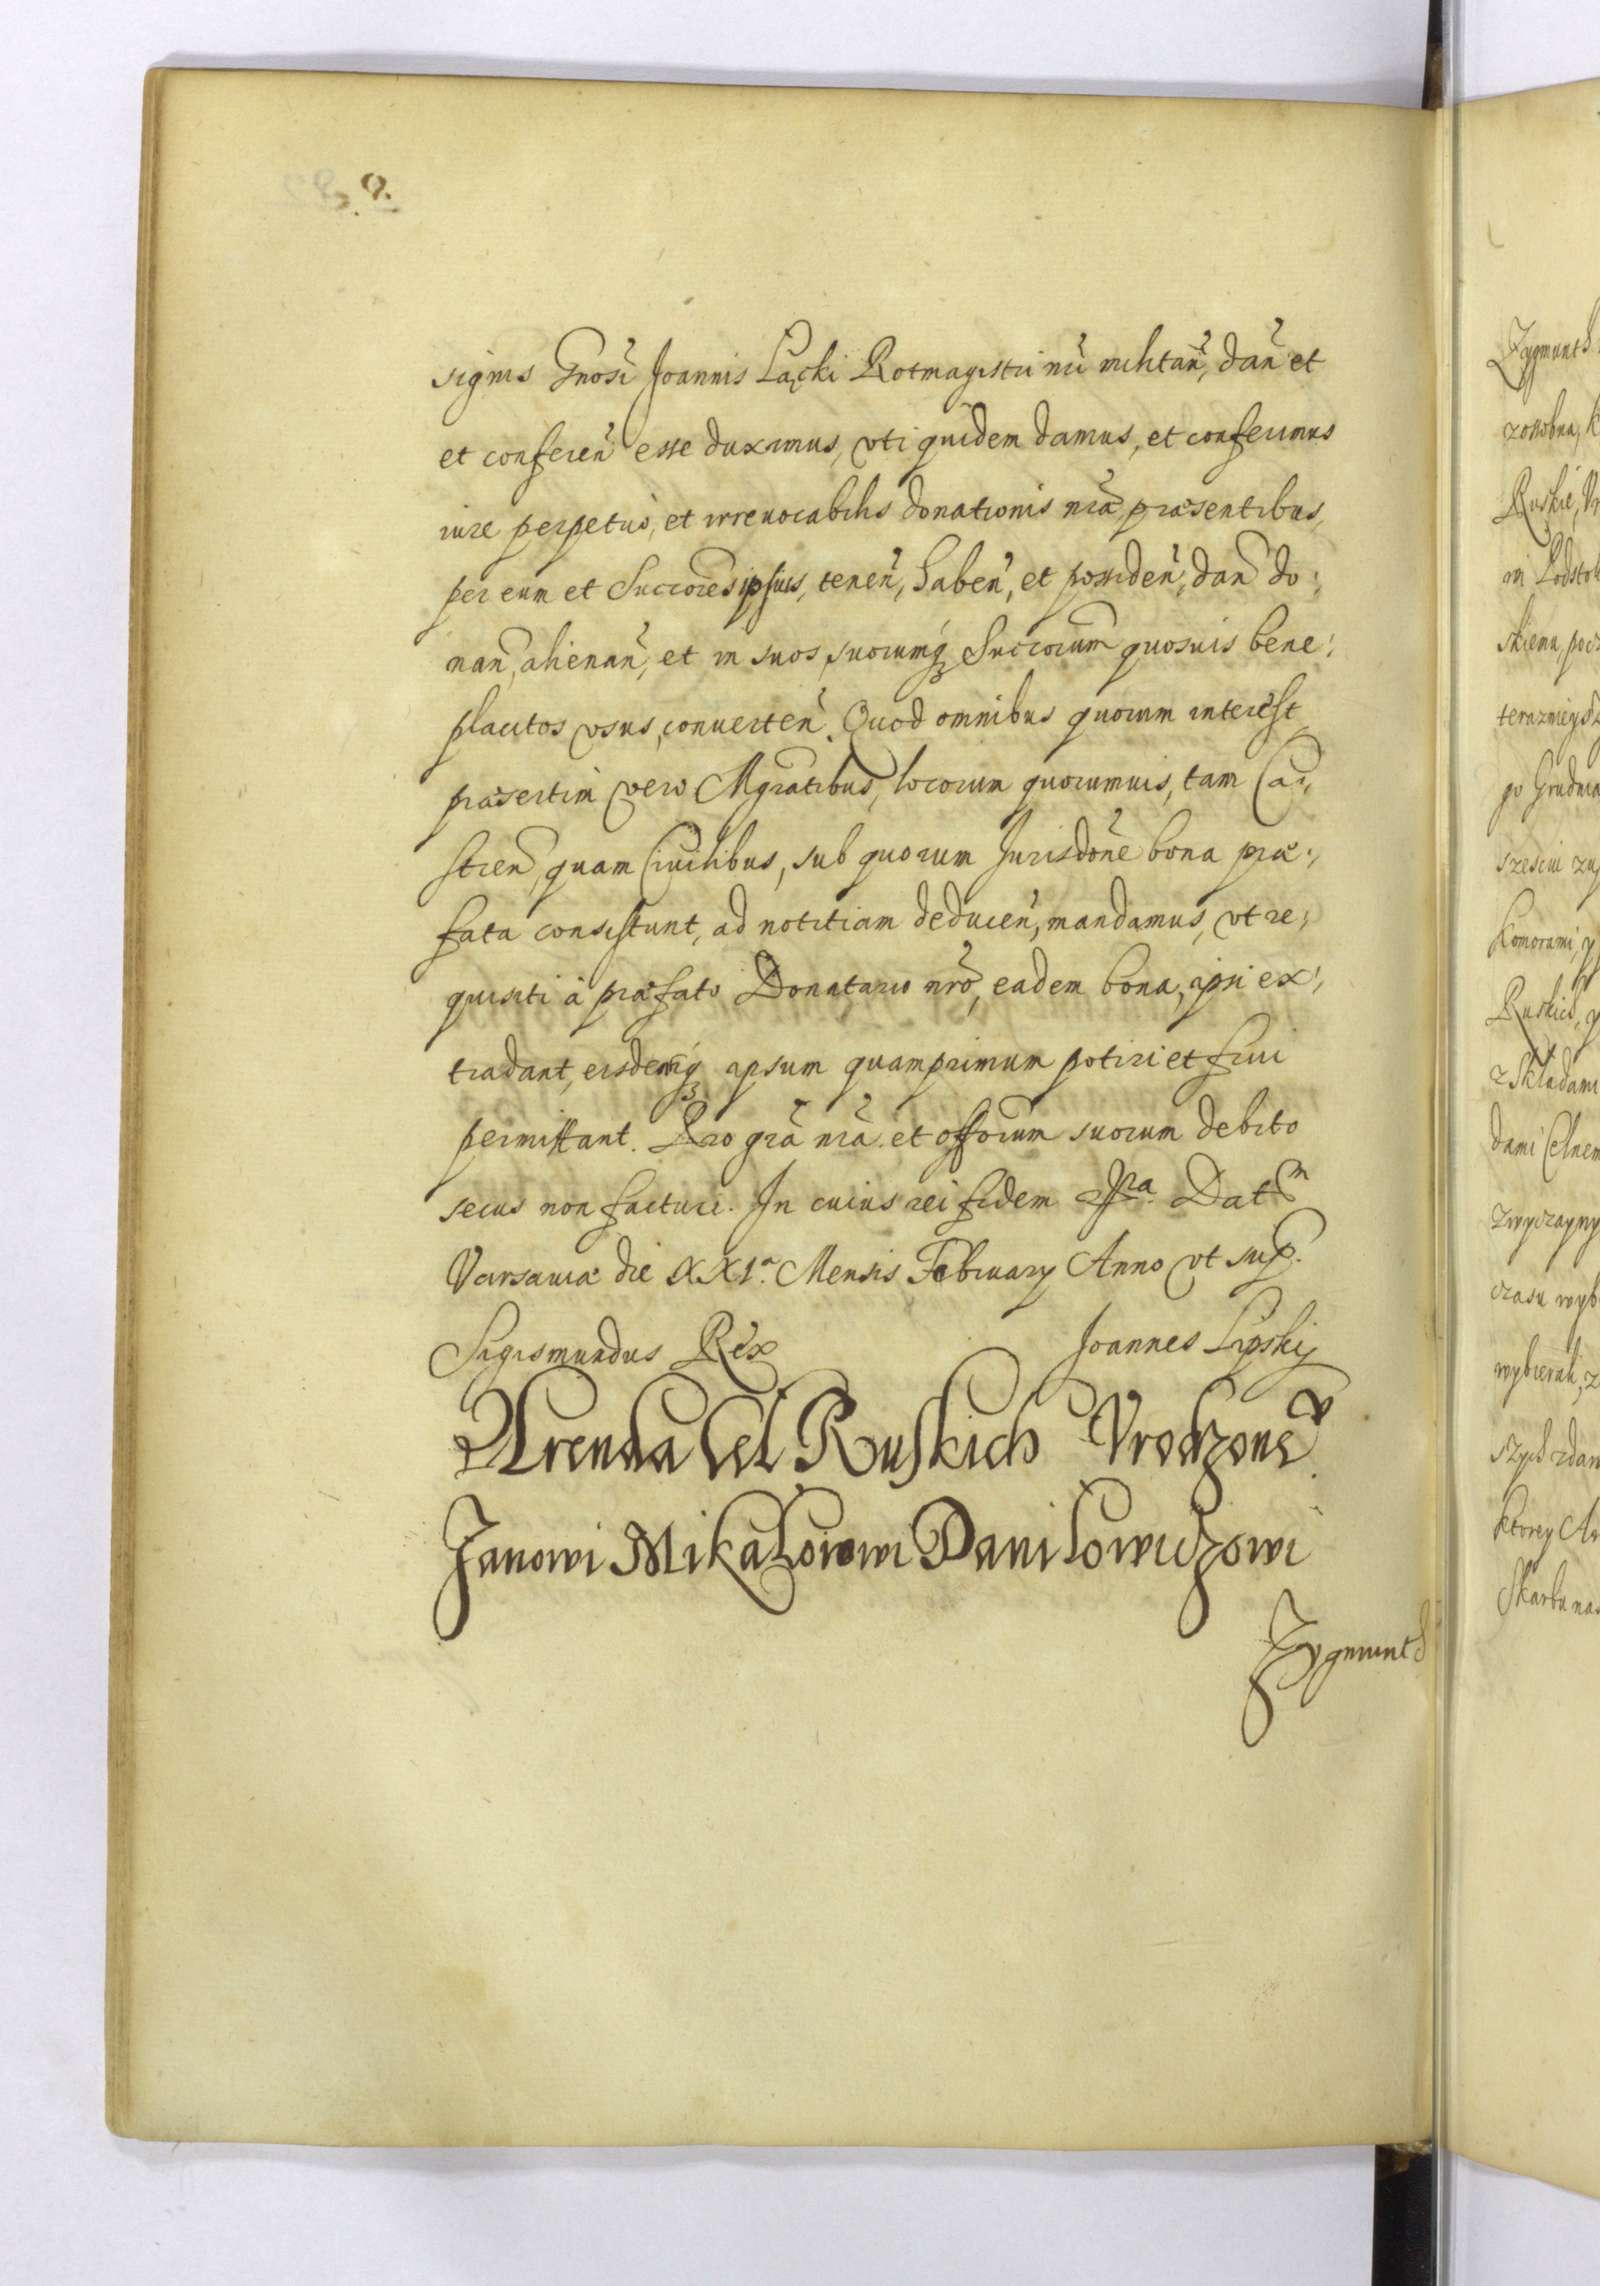 signis Gnosi Joannis Łącki Rotmagistri nri militan, dan et
et conferen esse duximus, vti quidem damus, et conferimus
iure perpetuo, et irreuocabilis donationis nra præsentibus,
per eum et Succores ipsius, tenen, haben, et possiden, dan do:
nan, alienan, et in suos, suorumq Succorum quosuis bene:
placitos vsus, conuerten. Quod omnibus quorum interest
præsertim vero Mgratibus, locorum quorumuis, tam Ca:
stren, quam Ciuilibus, sub quorum Jurisdone bona præ:
fata consistunt, ad notitiam deducen, mandamus, vt re:
quisiti à præfato Donatario nro, eadem bona, ipsi ex:
tradant, eisdemq ipsum quamprimum potiri et frui
permittant. Pro gra nra et offorum suorum debito
secus non facturi. In cuius rei fidem Pra. Datm
Varsauiæ die XXIa. Mensis February Anno vt sup.
Sigismundus Rex Joannes Lipskij
Arenda Cel Ruskich Vrodzone
Janowi Mikałoiowi Daniłowiczowi
Zygmunth
Zygmunth
Ruskie,
skiemu, pocz
go Grudnia
Komorami, y
Ruskich, y
z Składami
dami Celnem
zwyczayny
czasu wyb
wybierali, z
ktorey Ar
Skarbu nas